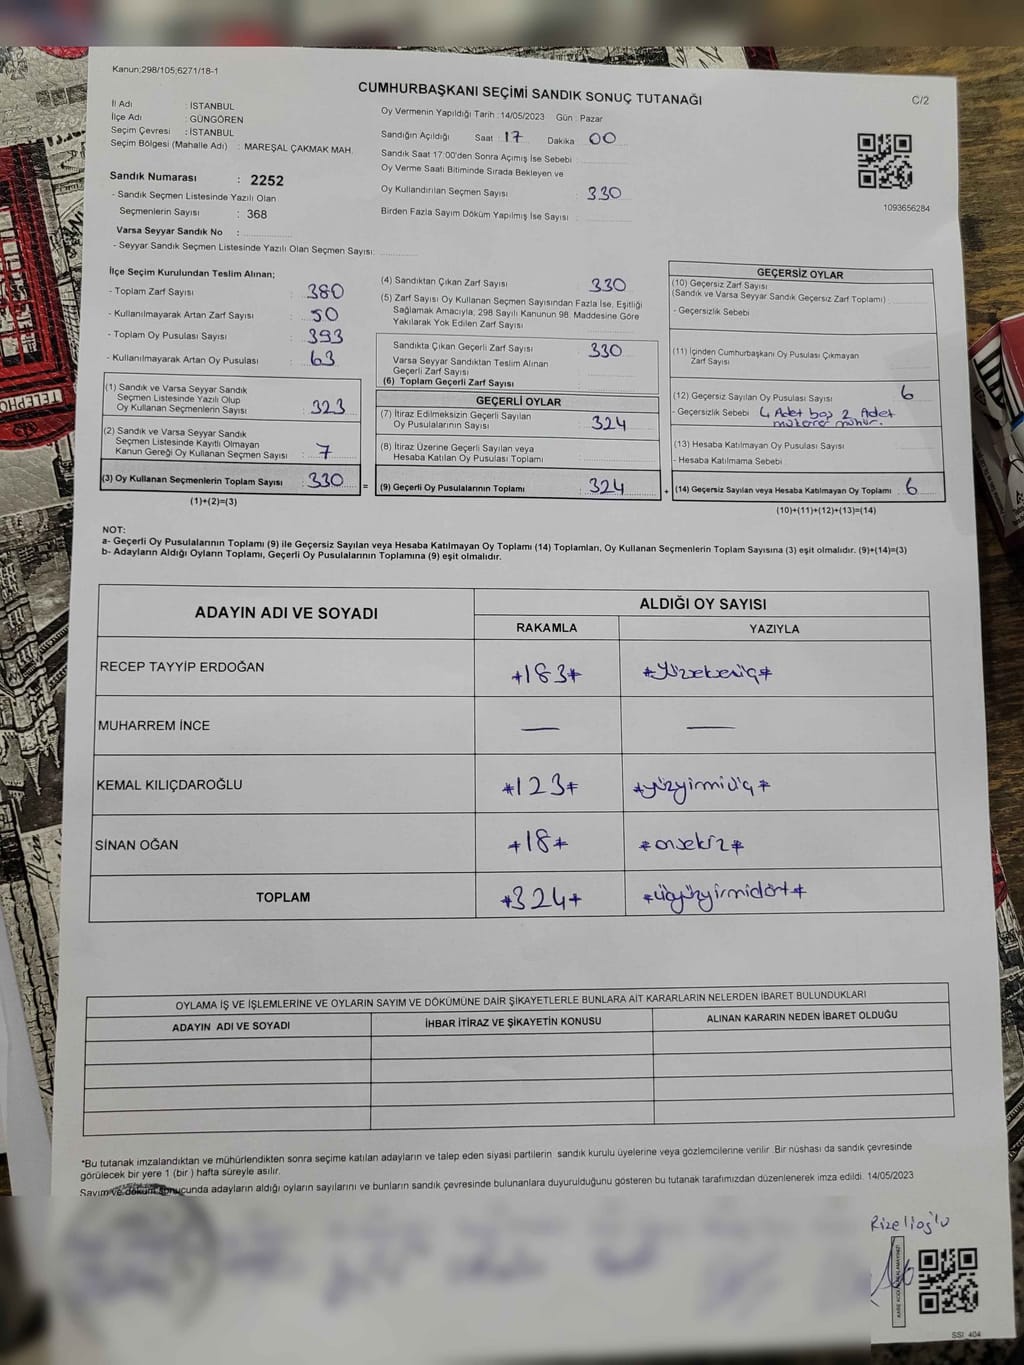 Kanun;298/105;6271/18-1
CUMHURBAŞKANI SEÇİMİ SANDIK SONUÇ TUTANAĞI
C/2
İl Adı : İSTANBUL
İlçe Adı : GÜNGÖREN
Seçim Çevresi : İSTANBUL
Seçim Bölgesi (Mahalle Adı) : MAREŞAL ÇAKMAK MAH.
Sandık Numarası : 2252
- Sandık Seçmen Listesinde Yazılı Olan
Seçmenlerin Sayısı : 368
Varsa Seyyar Sandık No :
- Seyyar Sandık Seçmen Listesinde Yazılı Olan Seçmen Sayısı:
Oy Vermenin Yapıldığı Tarih :14/05/2023 Gün : Pazar
Sandığın Açıldığı Saat : 17 Dakika 00
Sandık Saat 17:00'den Sonra Açımış İse Sebebi
Oy Verme Saati Bitiminde Sırada Bekleyen ve
Oy Kullandırılan Seçmen Sayısı : 330
Birden Fazla Sayım Döküm Yapılmış İse Sayısı :
1093656284
İlçe Seçim Kurulundan Teslim Alınan;
- Toplam Zarf Sayısı : 380
- Kullanılmayarak Artan Zarf Sayısı : 50
- Toplam Oy Pusulası Sayısı : 393
- Kullanılmayarak Artan Oy Pusulası : 63
(1) Sandık ve Varsa Seyyar Sandık
Seçmen Listesinde Yazılı Olup
Oy Kullanan Seçmenlerin Sayısı : 323
(2) Sandık ve Varsa Seyyar Sandık
Seçmen Listesinde Kayıtlı Olmayan
Kanun Gereği Oy Kullanan Seçmen Sayısı : 7
(3) Oy Kullanan Seçmenlerin Toplam Sayısı : 330 =
(1)+(2)=(3)
(4) Sandıktan Çıkan Zarf Sayısı : 330
(5) Zarf Sayısı Oy Kullanan Seçmen Sayısından Fazla İse, Eşitliği
Sağlamak Amacıyla, 298 Sayılı Kanunun 98. Maddesine Göre
Yakılarak Yok Edilen Zarf Sayısı :
Sandıkta Çıkan Geçerli Zarf Sayısı : 330
Varsa Seyyar Sandıktan Teslim Alınan
Geçerli Zarf Sayısı
(6) Toplam Geçerli Zarf Sayısı
GEÇERLİ OYLAR
(7) İtiraz Edilmeksizin Geçerli Sayılan
Oy Pusulalarının Sayısı : 324
(8) İtiraz Üzerine Geçerli Sayılan veya
Hesaba Katılan Oy Pusulası Toplamı :
(9) Geçerli Oy Pusulalarının Toplamı : 324 +
GEÇERSİZ OYLAR
(10) Geçersiz Zarf Sayısı
(Sandık ve Varsa Seyyar Sandık Geçersiz Zarf Toplamı) :
- Geçersizlik Sebebi
(11) İçinden Cumhurbaşkanı Oy Pusulası Çıkmayan
Zarf Sayısı
(12) Geçersiz Sayılan Oy Pusulası Sayısı : 6
- Geçersizlik Sebebi 4 Adet boş 2 Adet
mühür.
(13) Hesaba Katılmayan Oy Pusulası Sayısı
- Hesaba Katılmama Sebebi
(14) Geçersiz Sayılan veya Hesaba Katılmayan Oy Toplamı : 6
(10)+(11)+(12)+(13)=(14)
NOT:
a- Geçerli Oy Pusulalarının Toplamı (9) ile Geçersiz Sayılan veya Hesaba Katılmayan Oy Toplamı (14) Toplamları, Oy Kullanan Seçmenlerin Toplam Sayısına (3) eşit olmalıdır. (9)+(14)=(3)
b- Adayların Aldığı Oyların Toplamı, Geçerli Oy Pusulalarının Toplamına (9) eşit olmalıdır.
ADAYIN ADI VE SOYADI
ALDIĞI OY SAYISI
RAKAMLA YAZIYLA
RECEP TAYYİP ERDOĞAN *183* *Yüzseksenüç*
MUHARREM İNCE — —
KEMAL KILIÇDAROĞLU *123* *yüzyirmiüç*
SİNAN OĞAN *18* *onsekiz*
TOPLAM *324* *üçyüzyirmidört*
OYLAMA İŞ VE İŞLEMLERİNE VE OYLARIN SAYIM VE DÖKÜMÜNE DAİR ŞİKAYETLERLE BUNLARA AİT KARARLARIN NELERDEN İBARET BULUNDUKLARI
ADAYIN ADI VE SOYADI İHBAR İTİRAZ VE ŞİKAYETİN KONUSU ALINAN KARARIN NEDEN İBARET OLDUĞU
*Bu tutanak imzalandıktan ve mühürlendikten sonra seçime katılan adayların ve talep eden siyasi partilerin sandık kurulu üyelerine veya gözlemcilerine verilir .Bir nüshası da sandık çevresinde
görülecek bir yere 1 (bir ) hafta süreyle asılır.
Sayım ve döküm sonucunda adayların aldığı oyların sayılarını ve bunların sandık çevresinde bulunanlara duyurulduğunu gösteren bu tutanak tarafımızdan düzenlenerek imza edildi. 14/05/2023
Rizelioğlu
SSI: 404
TELEPHO